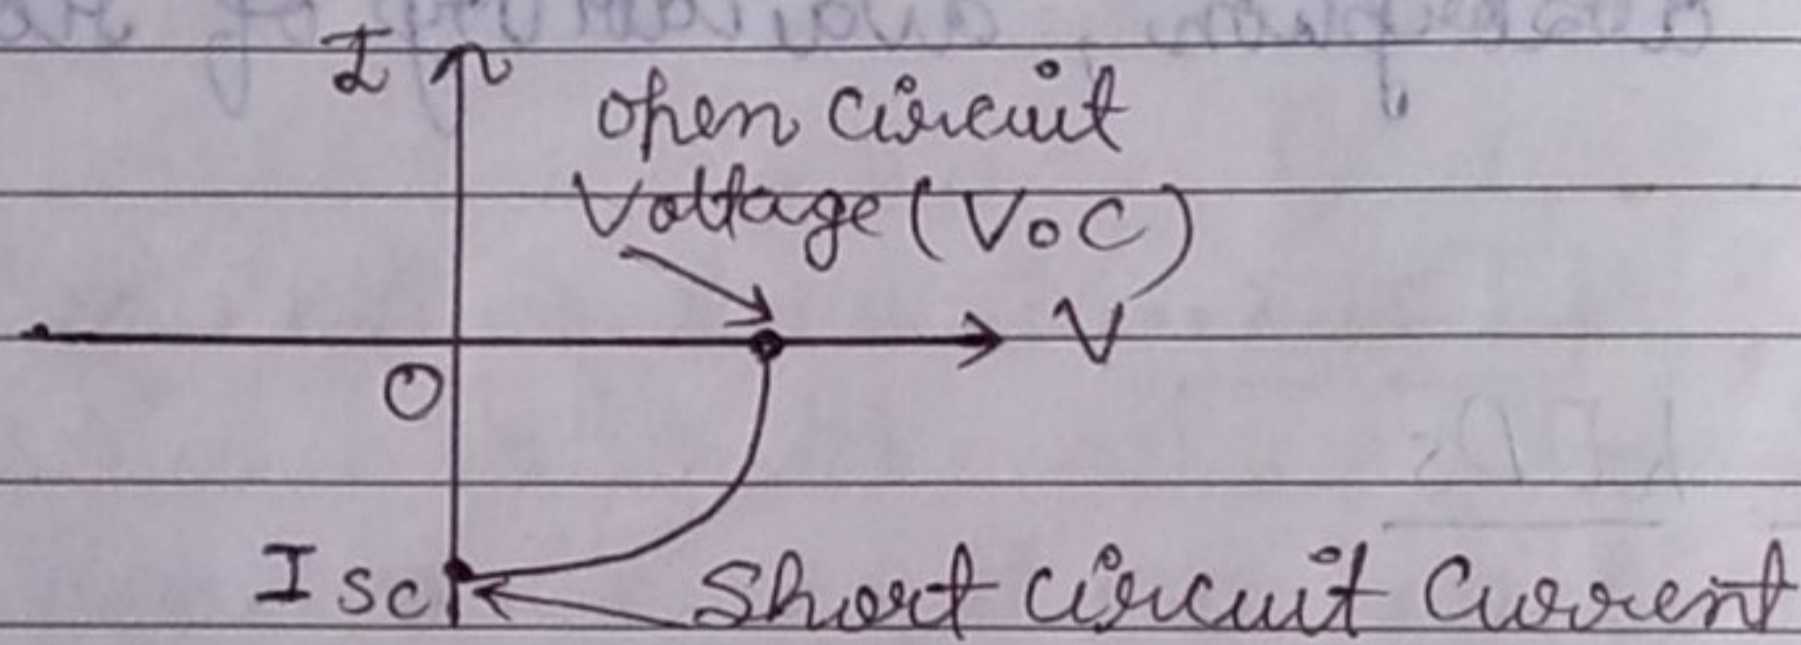 I
open circuit
Voltage (VOC)
V
O
Isc
Short circuit Current